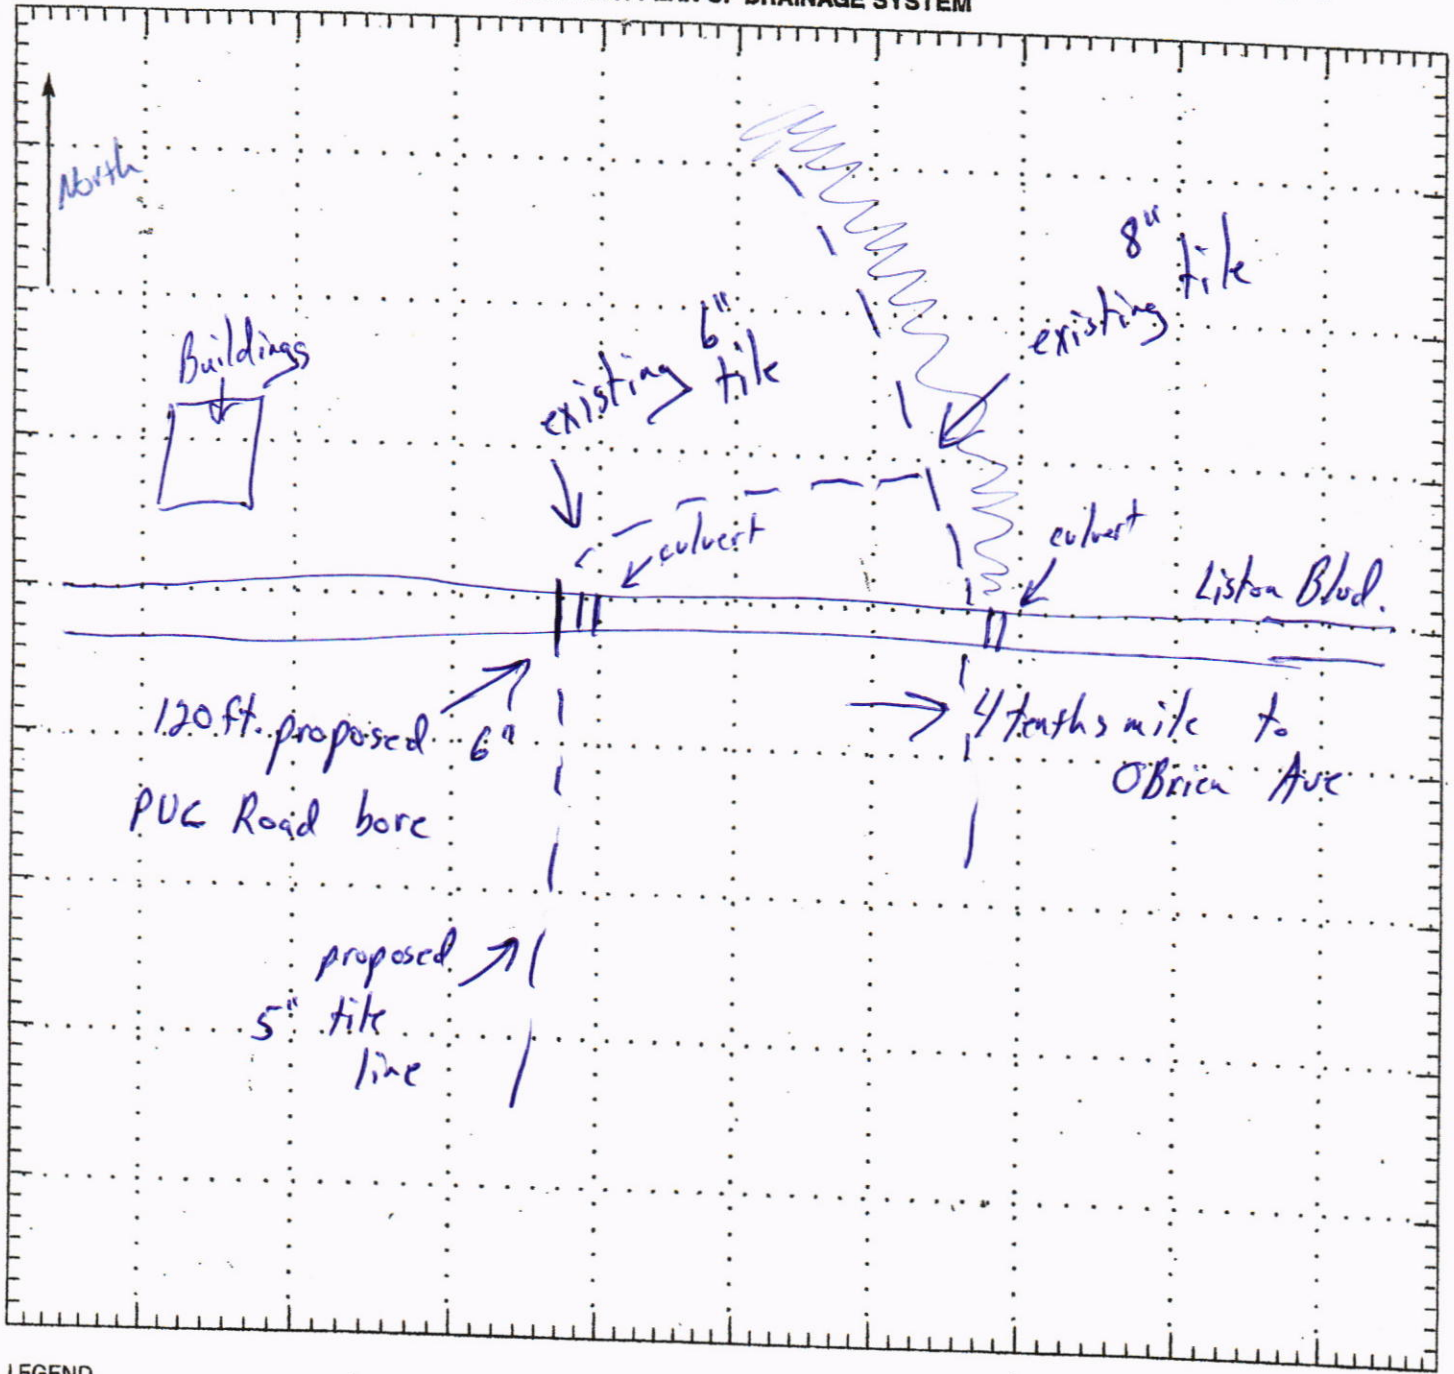 PLAN OF DRAINAGE SYSTEM
North
8"
existing tile
Buildings
existing 6" tile
culvert
culvert
Liston Blvd.
120 ft. proposed 6"
PVC Road bore
4 tenths mile to
OBrien Ave
proposed
5" tile
line
LEGEND